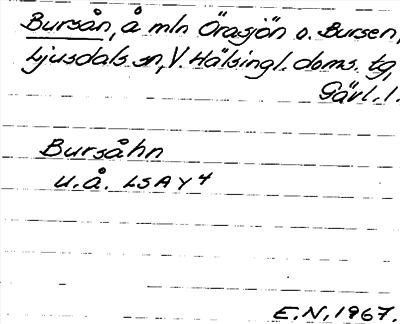 Bursån, å mln Örasjön o. Bursen,
Ljusdals sn, V. Hälsingl. doms. tg,
Gävl. l.
Bursåhn
u.å. LSA Y 4
E.N, 1967.